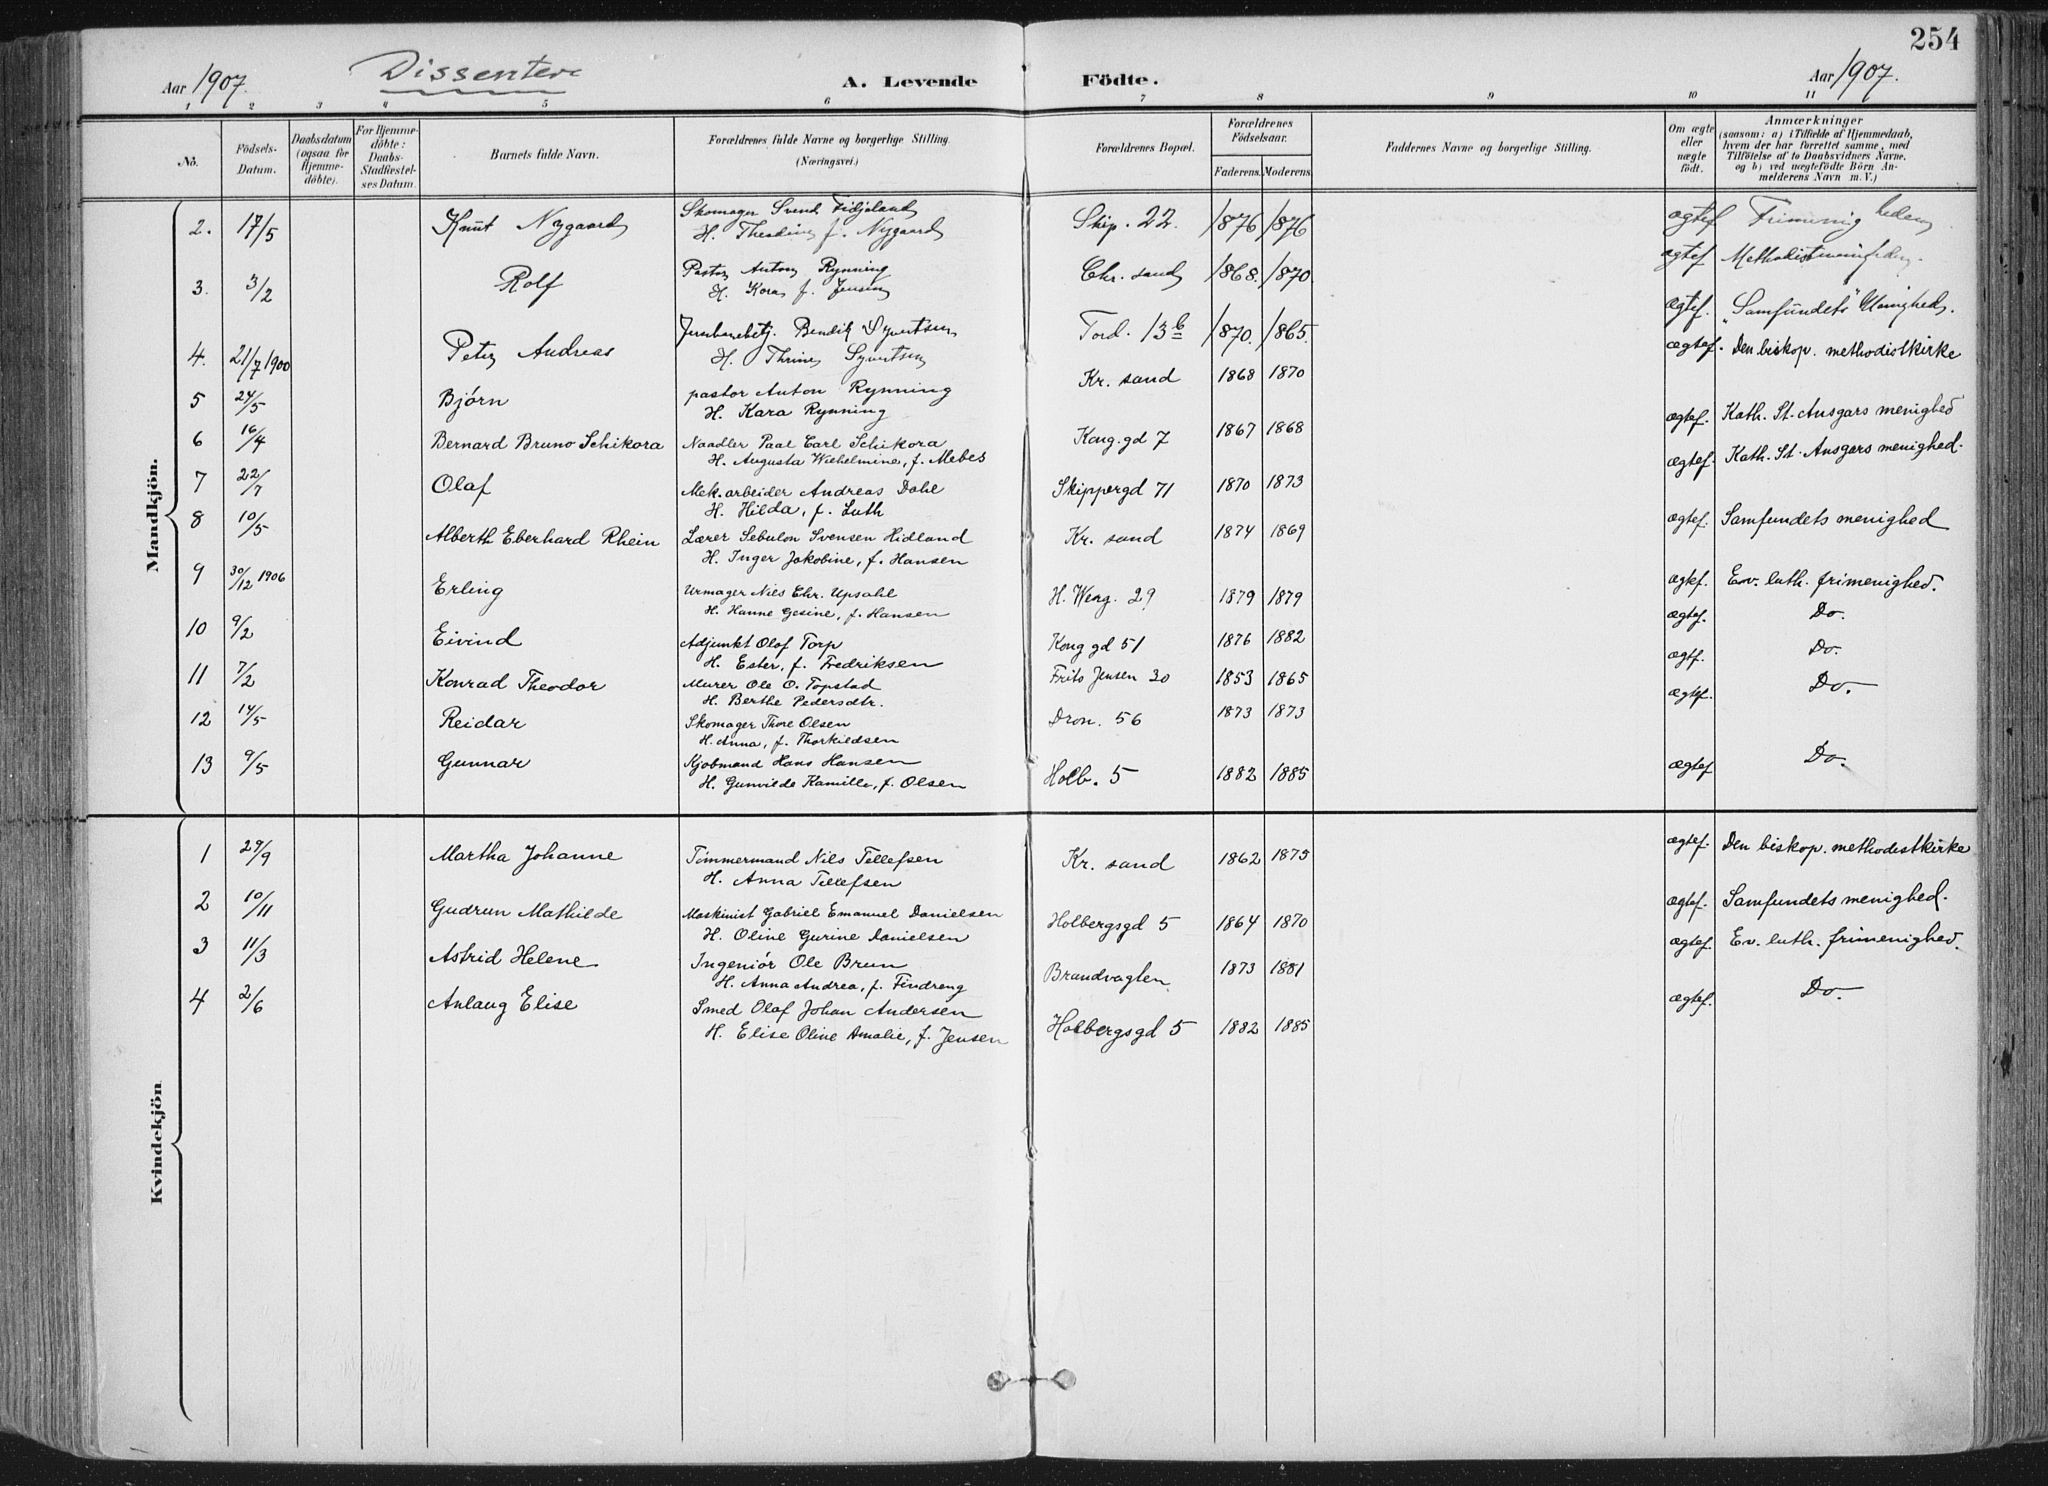 254
Aar 1907.
Dissentere
A. Levende Födte.
Aar 1907.
1 2 3 4 5 6 7 8 9 10 11
No.
Födsels-Datum.
Daabsdatum (ogsaa for Hjemme-döbte).
For Hjemme-döbte: Daabs-Stadfæstel-ses Datum.
Barnets fulde Navn.
Forældrenes fulde Navne og borgerlige Stilling.
(Næringsvei.)
Forældrenes Bopæl.
Forældrenes Födselsaar.
Faderens. Moderens.
Faddernes Navne og borgerlige Stilling.
Om ægte eller uægte födt.
Anmærkninger
(saasom: a) i Tilfælde af Hjemmedaab, hvem der har forrettet samme, med Tilföielse af to Daabsvidners Navne, og b) ved uægtefödte Börn An-melderens Navn m. V.)
Mandkjön.
2. 17/5 Knut Nygaard Skomager Svend Fidjeland Skip. 22. 1876 1876 ægtef Frimenigheden
H. Theodine f. Nygaard
3. 3/2 Rolf Pastor Anton Rynning Chr. sand 1868. 1870. ægtef Methodistmenigheden.
H. Kora f. Jensen
4. 21/7 1900 Peter Andreas Jernbanebetj. Bendik Syvertsen Tord. 13b 1870. 1865. ægtef. "Samfundets" Menighed.
H. Thrine Syvertsen
5 24/5 Bjørn pastor Anton Rynning Kr. sand 1868 1870 ægtef. Den biskop. methodistkirke
H. Kara Rynning
6 16/4 Bernard Bruno Schikora Naadler Paal Carl Schikora Kong. gd 7 1867 1868 ægtef. Kath. St. Ansgars menighed
H. Augusta Wilhelmine, f. Mebes
7 22/7 Olaf Mek. arbeider Andreas Dahl Skippergd 71 1870 1873 ægtef. Kath. St. Ansgars menighed.
H. Hilda, f. Luth
8 10/5 Alberth Eberhard Rhein Lærer Sebulon Svensen Hidland Kr. sand 1874 1869 ægtef. Samfundets menighed
H. Inger Jakobine, f. Hansen
9 30/12 1906 Erling Urmager Nils Chr. Upsahl H. Werg. 29 1879 1879 ægtef. Ev. luth. frimenighed.
H. Hanne Gesine, f. Hansen
10 9/2 Eivind Adjunkt Olaf Torp Kong gd 51 1876 1882 ægtef. Do.
H. Ester, f. Fredriksen
11 7/2 Konrad Theodor Murer Ole O. Topstad Frits Jensen 30 1853 1865 ægtf. Do.
H. Berthe Pedersdtr.
12 14/5 Reidar Skomager Thore Olsen Dron. 56 1873 1873 ægtef. Do.
H. Anna, f. Thorkildsen
13 9/5 Gunnar Kjøbmand Hans Hansen Holb. 5 1882 1885 ægtef Do.
H. Gunvilde Kamille, f. Olsen
Kvindekjön
1 29/9 Martha Johanne Tømmermand Nils Tellefsen Kr. sand 1862 1875 ægtef. Den biskop. methodistkirke
H. Anna Tellefsen
2 10/11 Gudrun Mathilde Maskinist Gabriel Emanuel Danielsen Holbergsgd 5 1864 1870 ægtef. Samfundets menighed.
H. Oline Gurine Danielsen
3 11/3 Astrid Helene Ingeniør Ole Brun Brandvagten 1873 1881 ægtef. Ev. luth. frimenighed.
H. Anna Andrea, f. Findreng
4 2/6 Anlaug Elise Smed Olaf Johan Andersen Holbergsgd 5 1882 1885 ægtef. Do.
H. Elise Oline Amalie, f. Jensen